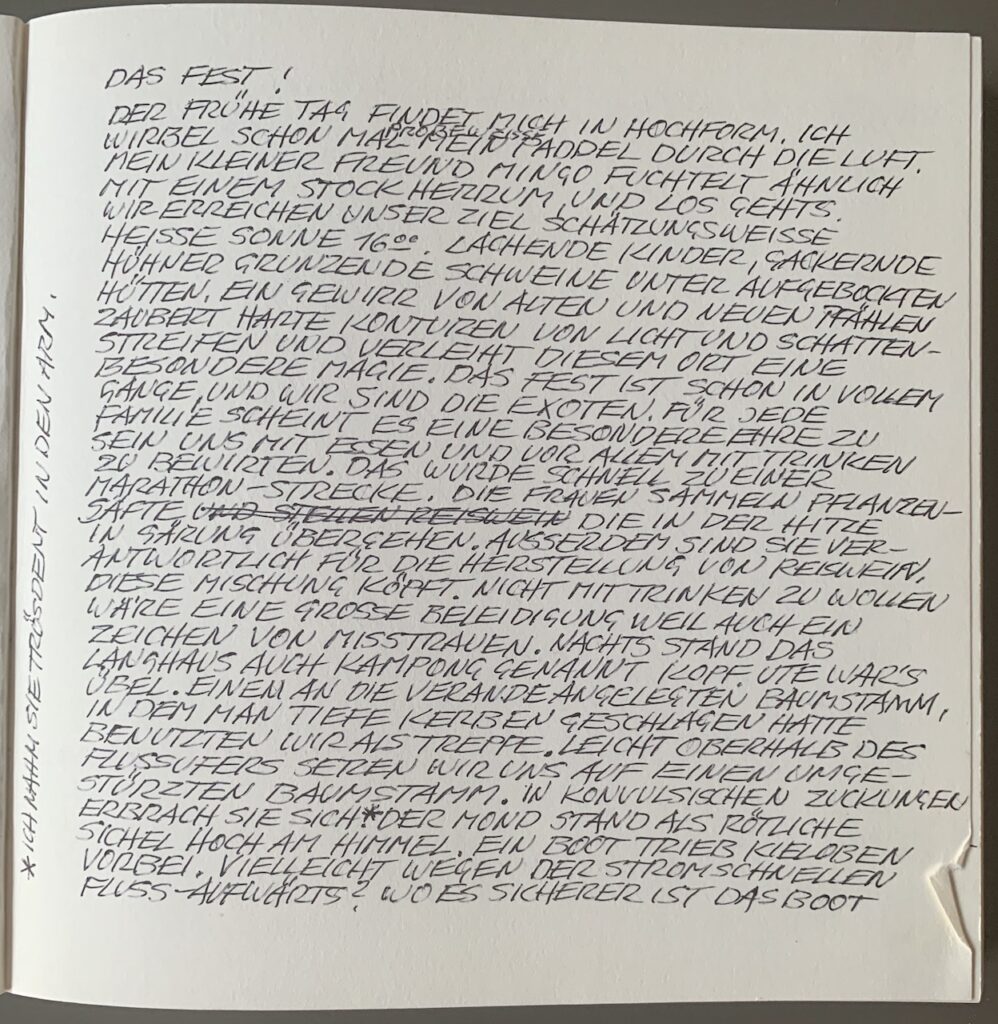 DAS FEST!
DER FRÜHE TAG FINDET MICH IN HOCHFORM. ICH
WIRBEL SCHON MAL PROBEWEISE MEIN PADDEL DURCH DIE LUFT.
MEIN KLEINER FREUND MINGO FUCHTELT ÄHNLICH
MIT EINEM STOCK HERRUM, UND LOS GEHTS.
WIR ERREICHEN UNSER ZIEL SCHÄTZUNGSWEISSE
HEISSE SONNE 16⁰⁰. LACHENDE KINDER, GACKERNDE
HÜHNER GRUNZENDE SCHWEINE UNTER AUFGEBOCKTEN
HÜTTEN. EIN GEWIRR VON ALTEN UND NEUEN PFÄHLEN
ZAUBERT HARTE KONTUREN VON LICHT UND SCHATTEN-
STREIFEN UND VERLEIHT DIESEM ORT EINE
BESONDERE MAGIE. DAS FEST IST SCHON IN VOLLEM
GANGE, UND WIR SIND DIE EXOTEN. FÜR JEDE
FAMILIE SCHEINT ES EINE BESONDERE EHRE ZU
SEIN UNS MIT ESSEN UND VOR ALLEM MIT TRINKEN
ZU BEWIRTEN. DAS WURDE SCHNELL ZU EINER
MARATHON-STRECKE. DIE FRAUEN SAMMELN PFLANZEN-
SÄFTE UND STELLEN REISWEIN DIE IN DER HITZE
IN GÄRUNG ÜBERGEHEN. AUSSERDEM SIND SIE VER-
ANTWORTLICH FÜR DIE HERSTELLUNG VON REISWEIN.
DIESE MISCHUNG KÖPFT. NICHT MITTRINKEN ZU WOLLEN
WÄRE EINE GROSSE BELEIDIGUNG WEIL AUCH EIN
ZEICHEN VON MISSTRAUEN. NACHTS STAND DAS
LANGHAUS AUCH KAMPONG GENANNT KOPF. UTE WAR'S
ÜBEL. EINEM AN DIE VERANDE ANGELEGTEN BAUMSTAMM,
IN DEM MAN TIEFE KERBEN GESCHLAGEN HATTE
BENUTZTEN WIR ALS TREPPE. LEICHT OBERHALB DES
FLUSSUFERS SETZEN WIR UNS AUF EINEN UMGE-
STÜRZTEN BAUMSTAMM. IN KONVULSISCHEN ZUCKUNGEN
ERBRACH SIE SICH * DER MOND STAND ALS RÖTLICHE
SICHEL HOCH AM HIMMEL. EIN BOOT TRIEB KIELOBEN
VORBEI. VIELLEICHT WEGEN DER STROMSCHNELLEN
FLUSS-AUFWÄRTS? WO ES SICHERER IST DAS BOOT
* ICH NAHM SIE TRÖSDENT IN DEN ARM.